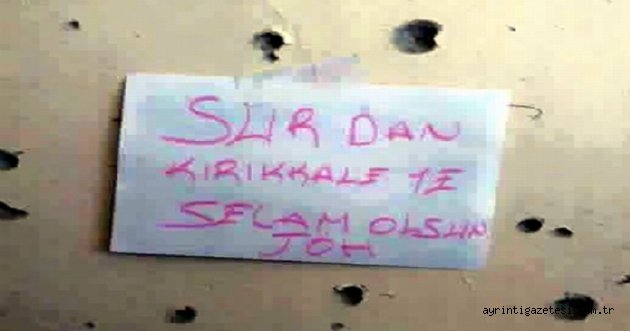 SUR DAN
KIRIKKALE YE
SELAM OLSUN
JÖH
ayrintigazetesi.com.tr